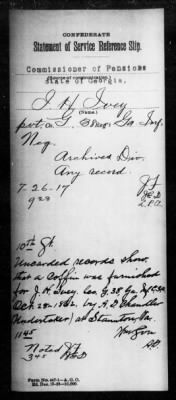 CONFEDERATE
Statement of Service Reference Slip.
Commissioner of Pensions
(Source of communication.)
State of Georgia.
J. H. Ivey
(Name.)
pvt. co. G. 38 Regt. Ga. Inf.
Neg.
Archives Div.
Any record.
7-26-17
923
Uncarded records show
that a Coffin was furnished
for J. H. Ivey. Co. G, 38 Ga
Oct 28-1862, by A. D. Chandler
Undertaker, at Staunton, Va.
1145
Noted
Form No. 467-1—A. G. O.